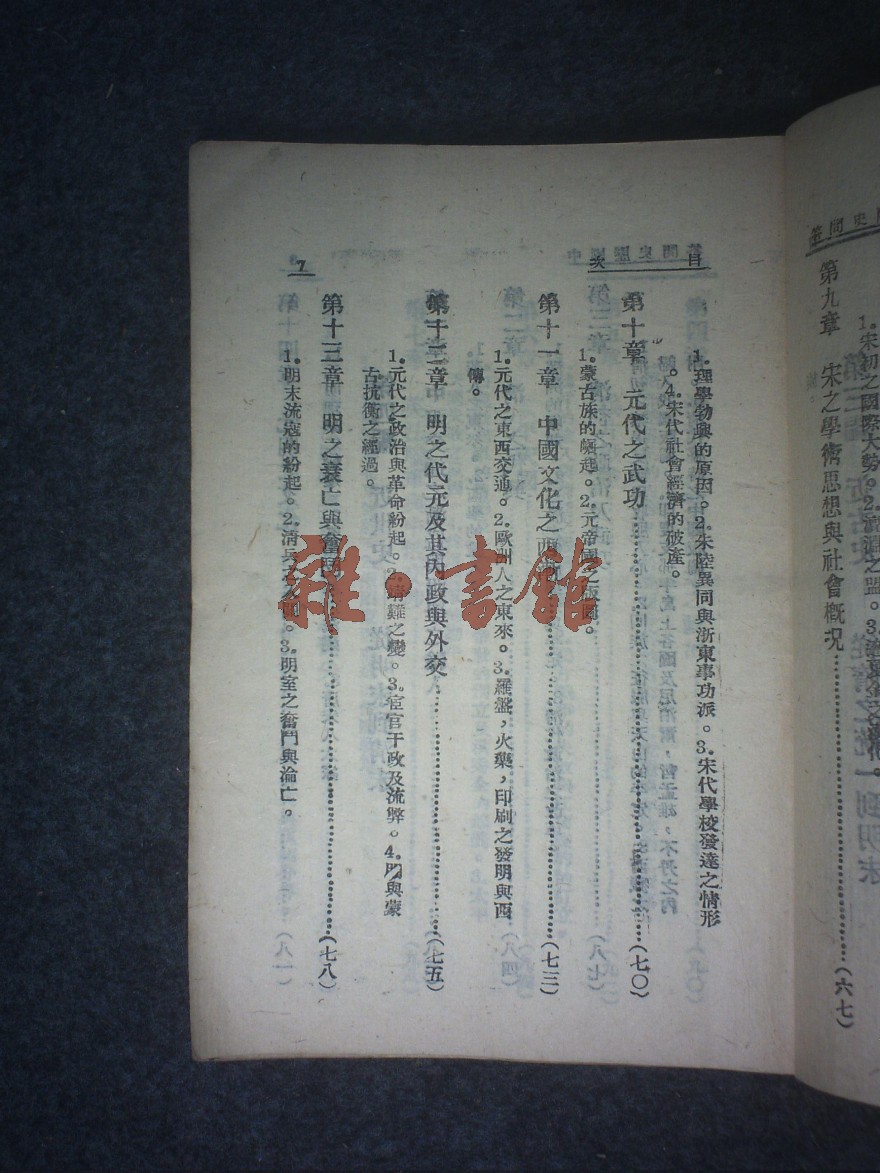 史問答
第九章 宋之學術思想與社會概況……(六七)
1.宋初之國際大勢。2.澶淵之盟。3.
目次
7
1.理學勃興的原因。2.朱陸異同與浙東事功派。3.宋代學校發達之情形
。4.宋代社會經濟的破產。
第十章 元代之武功……(七〇)
1.蒙古族的崛起。2.元帝國之版圖。
第十一章 中國文化之西漸……(七三)
1.元代之東西交通。2.歐洲人之東來。3.羅盤,火藥,印刷之發明與西
傳。
第十二章 明之代元及其內政與外交……(七五)
1.元代之政治與革命紛起。2.靖難之變。3.宦官干政及流弊。4.明與蒙
古抗衡之經過。
第十三章 明之衰亡與奮鬥……(七八)
1.明末流寇的紛起。2.清兵之入關。3.明室之奮鬥與淪亡。
雜·書館